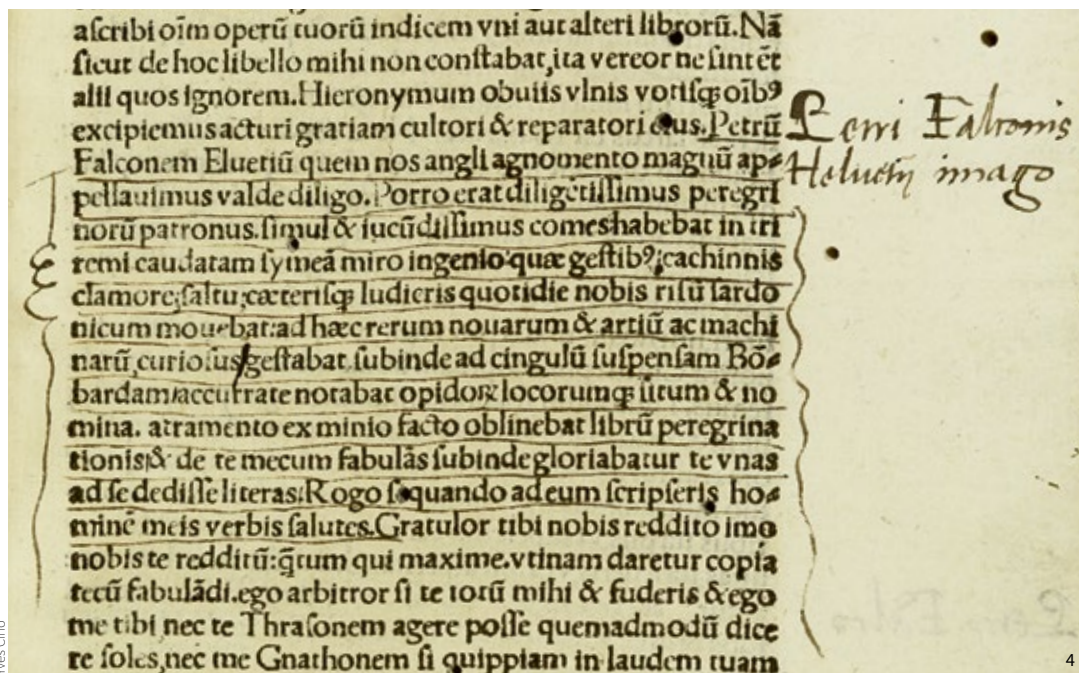 aſcribi oīm operū tuorū indicem vni aut alteri librorū. Nā
ſicut de hoc libello mihi non conſtabat, ita vereor ne ſint ēt
alii quos ignorem. Hieronymum obuiis vlnis votiſq; oībꝰ
excipiemus acturi gratiam cultori & reparatori eius. Petrū
Petri Falconis
Falconem Eluetiū quem nos angli agnomento magnū ap⸗
Heluetij imago
pellauimus valde diligo. Porro erat diligētiſſimus peregri
norū patronus. ſimul & iucūdiſſimus comes habebat in tri
remi caudatam ſymeā miro ingenio quæ geſtibꝰ; cachinnis
clamore; ſaltu; cæteriſq; ludicris quotidie nobis riſū ſardo
nicum mouebat: ad hæc rerum nouarum & artiū ac machi
narū curioſus/ geſtabat ſubinde ad cingulū ſuſpenſam Bō⸗
bardam; accurrate notabat opidoꝝ locorumq; ſitum & no
mina. atramento ex minio facto oblinebat librū peregrina
tionis; & de te mecum fabulās ſubinde gloriabatur te vnas
ad ſe dediſſe literas: Rogo ſi quando ad eum ſcripſeris ho⸗
minē meis verbis ſalutes. Gratulor tibi nobis reddito imo
nobis te redditū: q̄tum qui maxime. vtinam daretur copia
tecū fabulādi. ego arbitror ſi te totū mihi & fuderis & ego
me tibi nec te Thraſonem agere poſſe quemadmodū dice
re ſoles, nec me Gnathonem ſi quippiam in laudem tuam
4